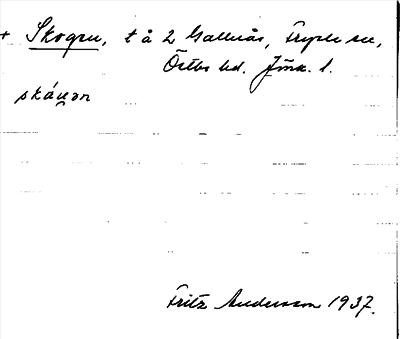 + Skogen, t å 2 Gallnås, Fryele sn,
Östbo hd. Jönk. l.
skáu̯ən
Fritz Andersson 1937.